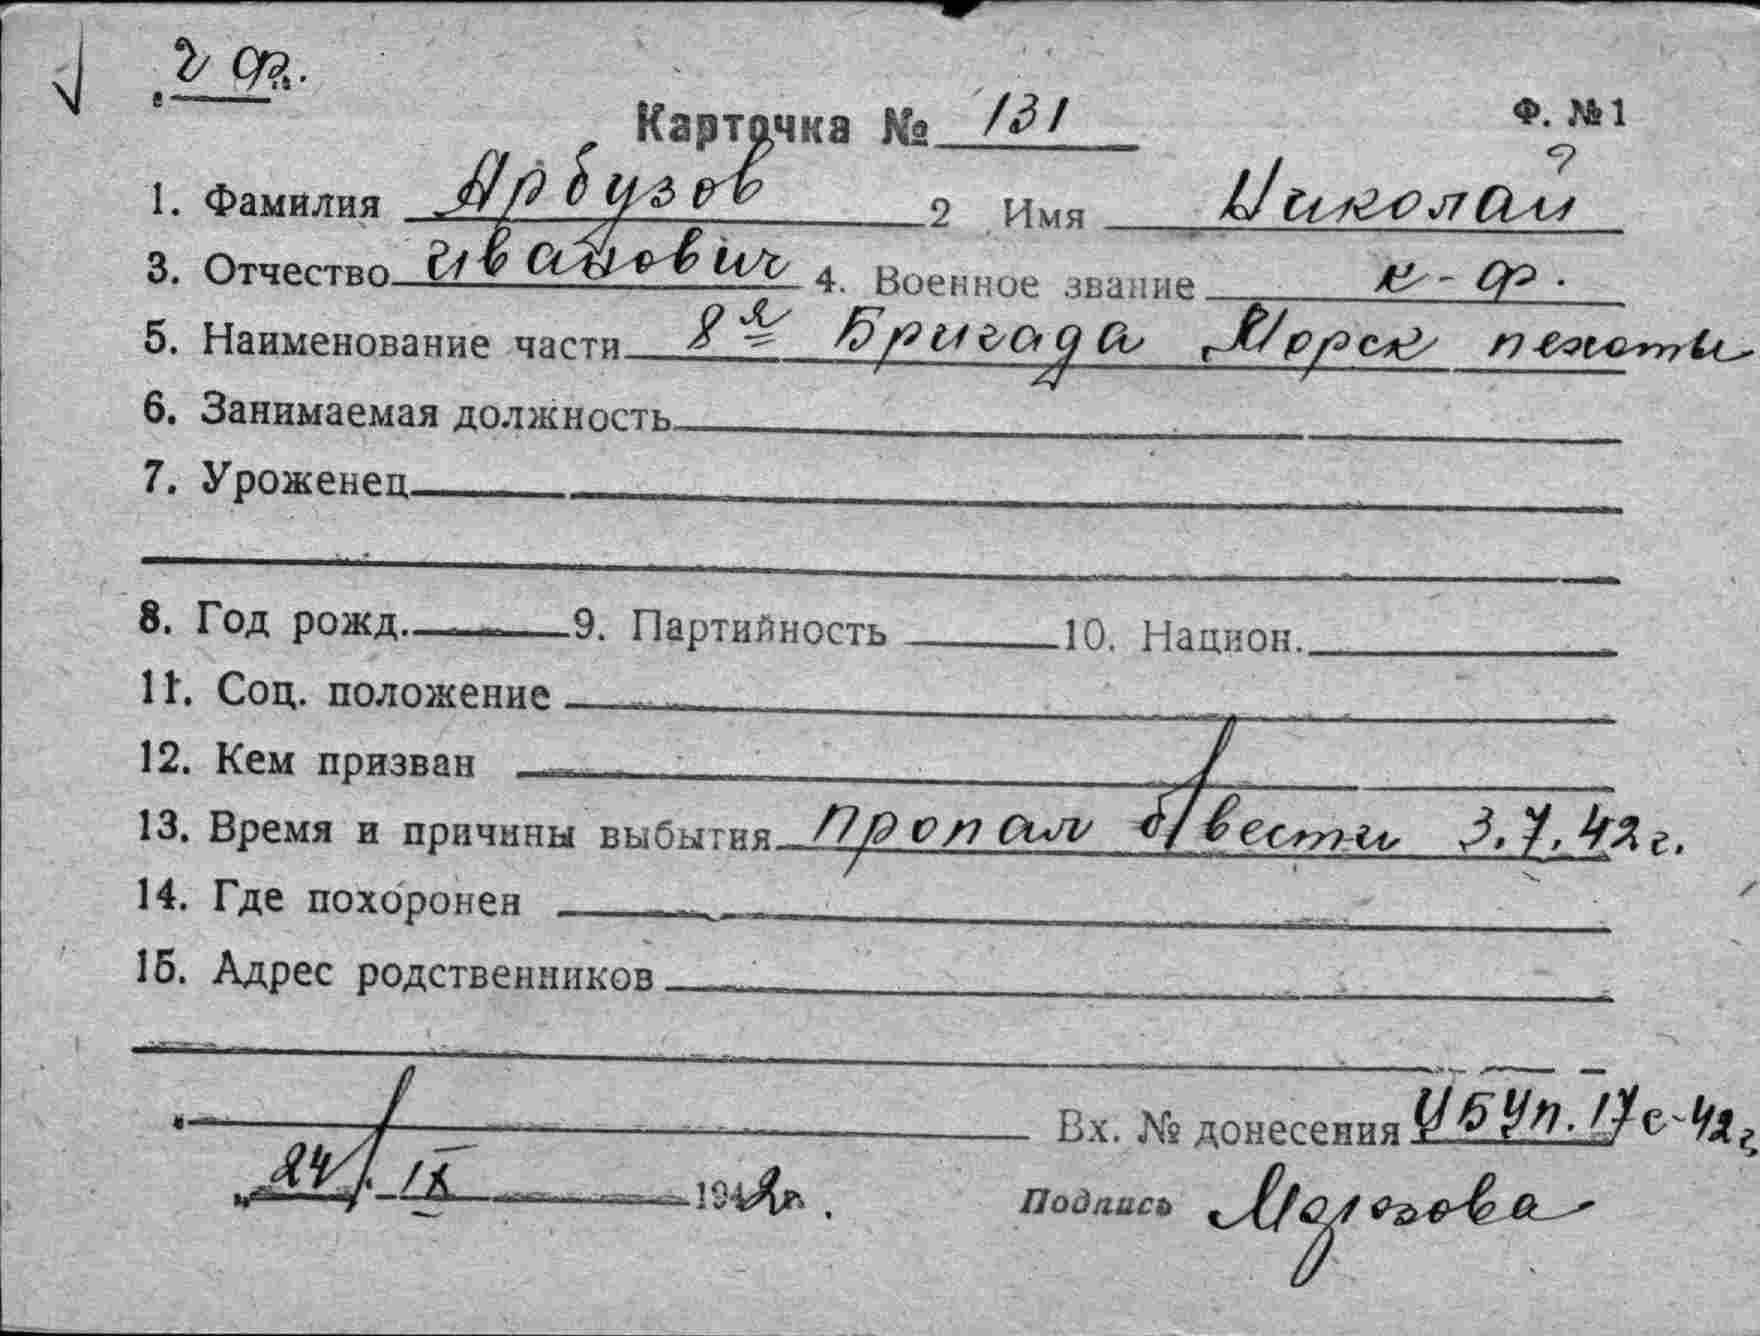 ч ф.
Карточка № 131 Ф. №1
1. Фамилия Арбузов 2 Имя Николай
3. Отчество Иванович 4. Военное звание к-ф.
5. Наименование части 8я Бригада Морск пехоты
6. Занимаемая должность
7. Уроженец
8. Год рожд. 9. Партийность 10. Национ.
11. Соц. положение
12. Кем призван
13. Время и причины выбытия пропал б/вести 3.7.42г.
14. Где похоронен
15. Адрес родственников
Вх. № донесения УБУп. 17с-42г
24/IX 1942г. Подпись Морозова